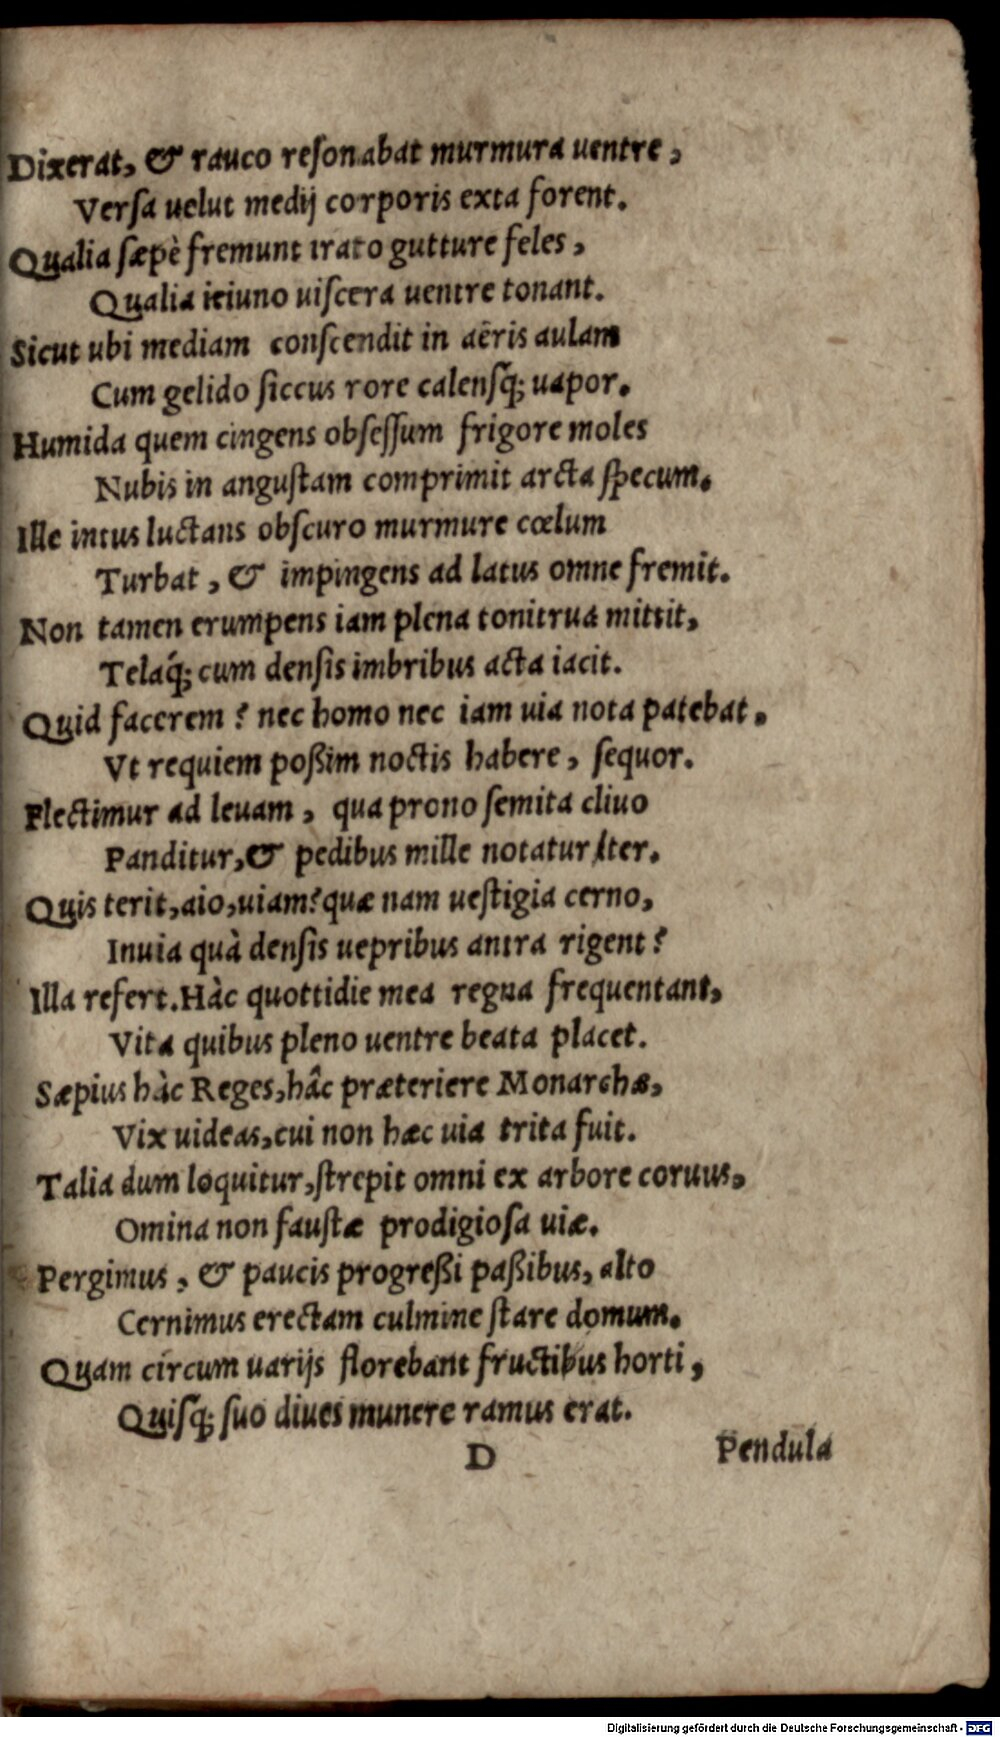 Dixerat, & rauco resonabat murmura uentre,
Versa uelut medij corporis exta forent.
Qualia sæpè fremunt irato gutture feles,
Qualia ieiuno uiscera uentre tonant.
Sicut ubi mediam conscendit in aëris aulam
Cum gelido siccus rore calensq; uapor.
Humida quem cingens obsessum frigore moles
Nubis in angustam comprimit arcta specum.
Ille intus luctans obscuro murmure cœlum
Turbat, & impingens ad latus omne fremit.
Non tamen erumpens iam plena tonitrua mittit,
Telaq́; cum densis imbribus acta iacit.
Quid facerem? nec homo nec iam uia nota patebat.
Vt requiem poßim noctis habere, sequor.
Flectimur ad leuam, qua prono semita cliuo
Panditur, & pedibus mille notatur iter.
Quis terit, aio, uiam? quæ nam uestigia cerno,
Inuia quà densis uepribus antra rigent?
Illa refert. Hàc quottidie mea regna frequentant,
Vita quibus pleno uentre beata placet.
Sæpius hàc Reges, hâc præteriere Monarchæ,
Vix uideas, cui non hæc uia trita fuit.
Talia dum loquitur, strepit omni ex arbore coruus,
Omina non faustæ prodigiosa uiæ.
Pergimus, & paucis progreßi paßibus, alto
Cernimus erectam culmine stare domum.
Quam círcum uarijs florebant fructibus horti,
Quisq; suo diues munere ramus erat.
D Pendula
Digitalisierung gefördert durch die Deutsche Forschungsgemeinschaft - DFG